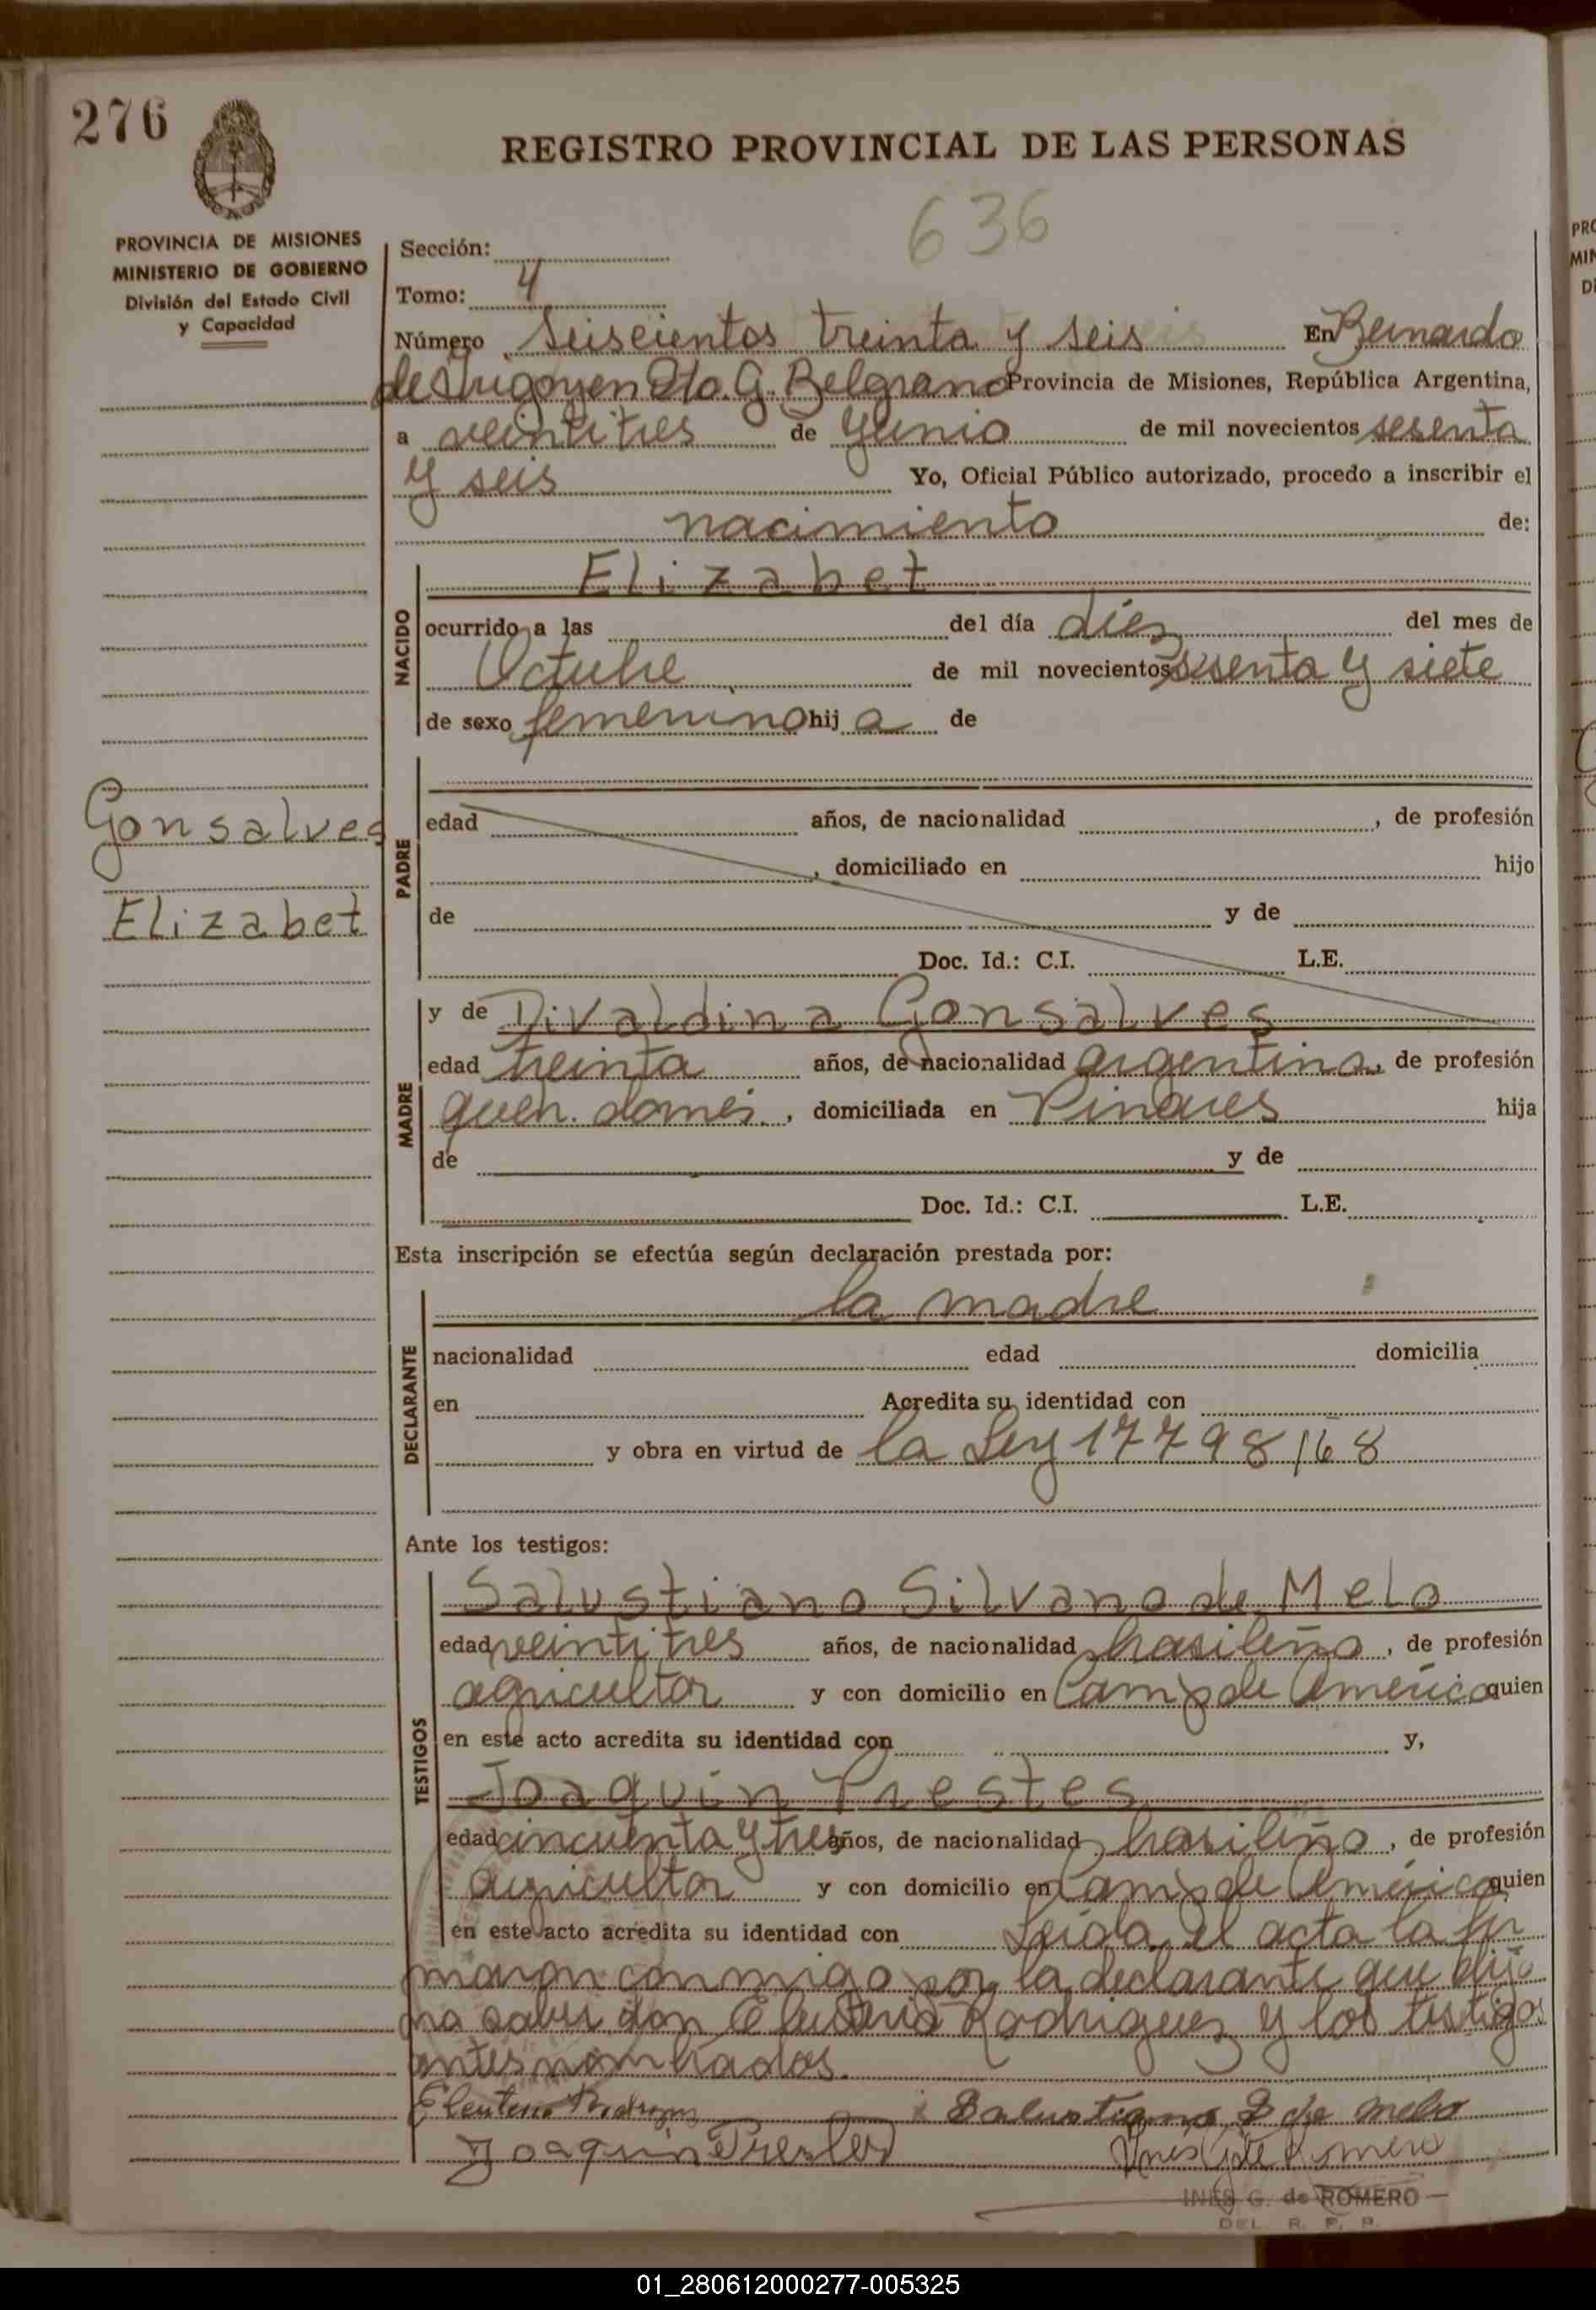 276
REGISTRO PROVINCIAL DE LAS PERSONAS
636
PROVINCIA DE MISIONES
MINISTERIO DE GOBIERNO
División del Estado Civil
y Capacidad
Sección:
Tomo: 4
Número Seiscientos treinta y seis En Bernardo
de Irigoyen Dto. G. Belgrano Provincia de Misiones, República Argentina,
a veintitres de Junio de mil novecientos sesenta
y seis Yo, Oficial Público autorizado, procedo a inscribir el
nacimiento de:
NACIDO
Elizabet
ocurrido a las del día diez del mes de
Octubre de mil novecientos sesenta y siete
de sexo femenino hij a de
Gonsalves
Elizabet
PADRE
edad años, de nacionalidad , de profesión
, domiciliado en hijo
de y de
Doc. Id.: C.I. L.E.
MADRE
y de Divaldina Gonsalves
edad treinta años, de nacionalidad argentina, de profesión
queh. domes. , domiciliada en Pinares hija
de y de
Doc. Id.: C.I. L.E.
Esta inscripción se efectúa según declaración prestada por:
DECLARANTE
la madre
nacionalidad edad domicilia
en Acredita su identidad con
y obra en virtud de la Ley 17798/68
Ante los testigos:
TESTIGOS
Salustiano Silvano de Melo
edad veintitres años, de nacionalidad brasileño , de profesión
agricultor y con domicilio en Camp de América quien
en este acto acredita su identidad con y,
Joaquin Prestes
edad cincuenta y tres años, de nacionalidad brasileño , de profesión
agricultor y con domicilio en Camp de América quien
en este acto acredita su identidad con Leida el acta la fir
maron conmigo por la declarante que dijo
no saber don Eleuterio Rodriguez y los testigos
antes nombrados.
Eleuterio Rodriguez Salustiano S de melo
Joaquin Prestes Ines G de Romero
INES G. de ROMERO
DEL. R. P. P.
01_280612000277-005325